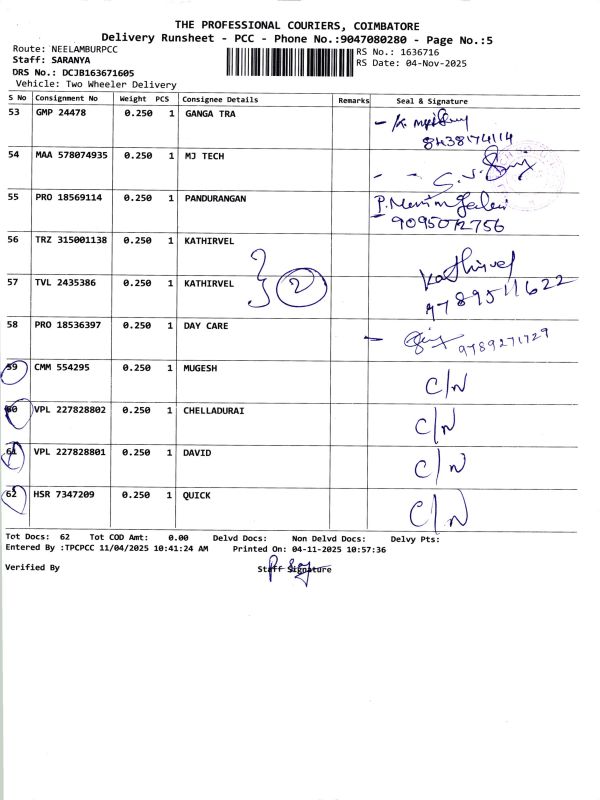 THE PROFESSIONAL COURIERS, COIMBATORE
Delivery Runsheet - PCC - Phone No.:9047080280 - Page No.:5
Route: NEELAMBURPCC
RS No.: 1636716
Staff: SARANYA
RS Date: 04-Nov-2025
DRS No.: DCJB163671605
Vehicle: Two Wheeler Delivery
S No Consignment No Weight PCS Consignee Details Remarks Seal & Signature
53 GMP 24478 0.250 1 GANGA TRA
8438174114
54 MAA 578074935 0.250 1 MJ TECH
55 PRO 18569114 0.250 1 PANDURANGAN
9095072756
56 TRZ 315001138 0.250 1 KATHIRVEL
57 TVL 2435386 0.250 1 KATHIRVEL 2 Kathirvel
9789511622
58 PRO 18536397 0.250 1 DAY CARE 9789271729
59 CMM 554295 0.250 1 MUGESH C/N
60 VPL 227828802 0.250 1 CHELLADURAI C/N
61 VPL 227828801 0.250 1 DAVID C/N
62 HSR 7347209 0.250 1 QUICK C/N
Tot Docs: 62 Tot COD Amt: 0.00 Delvd Docs: Non Delvd Docs: Delvy Pts:
Entered By :TPCPCC 11/04/2025 10:41:24 AM Printed On: 04-11-2025 10:57:36
Verified By Staff Signature